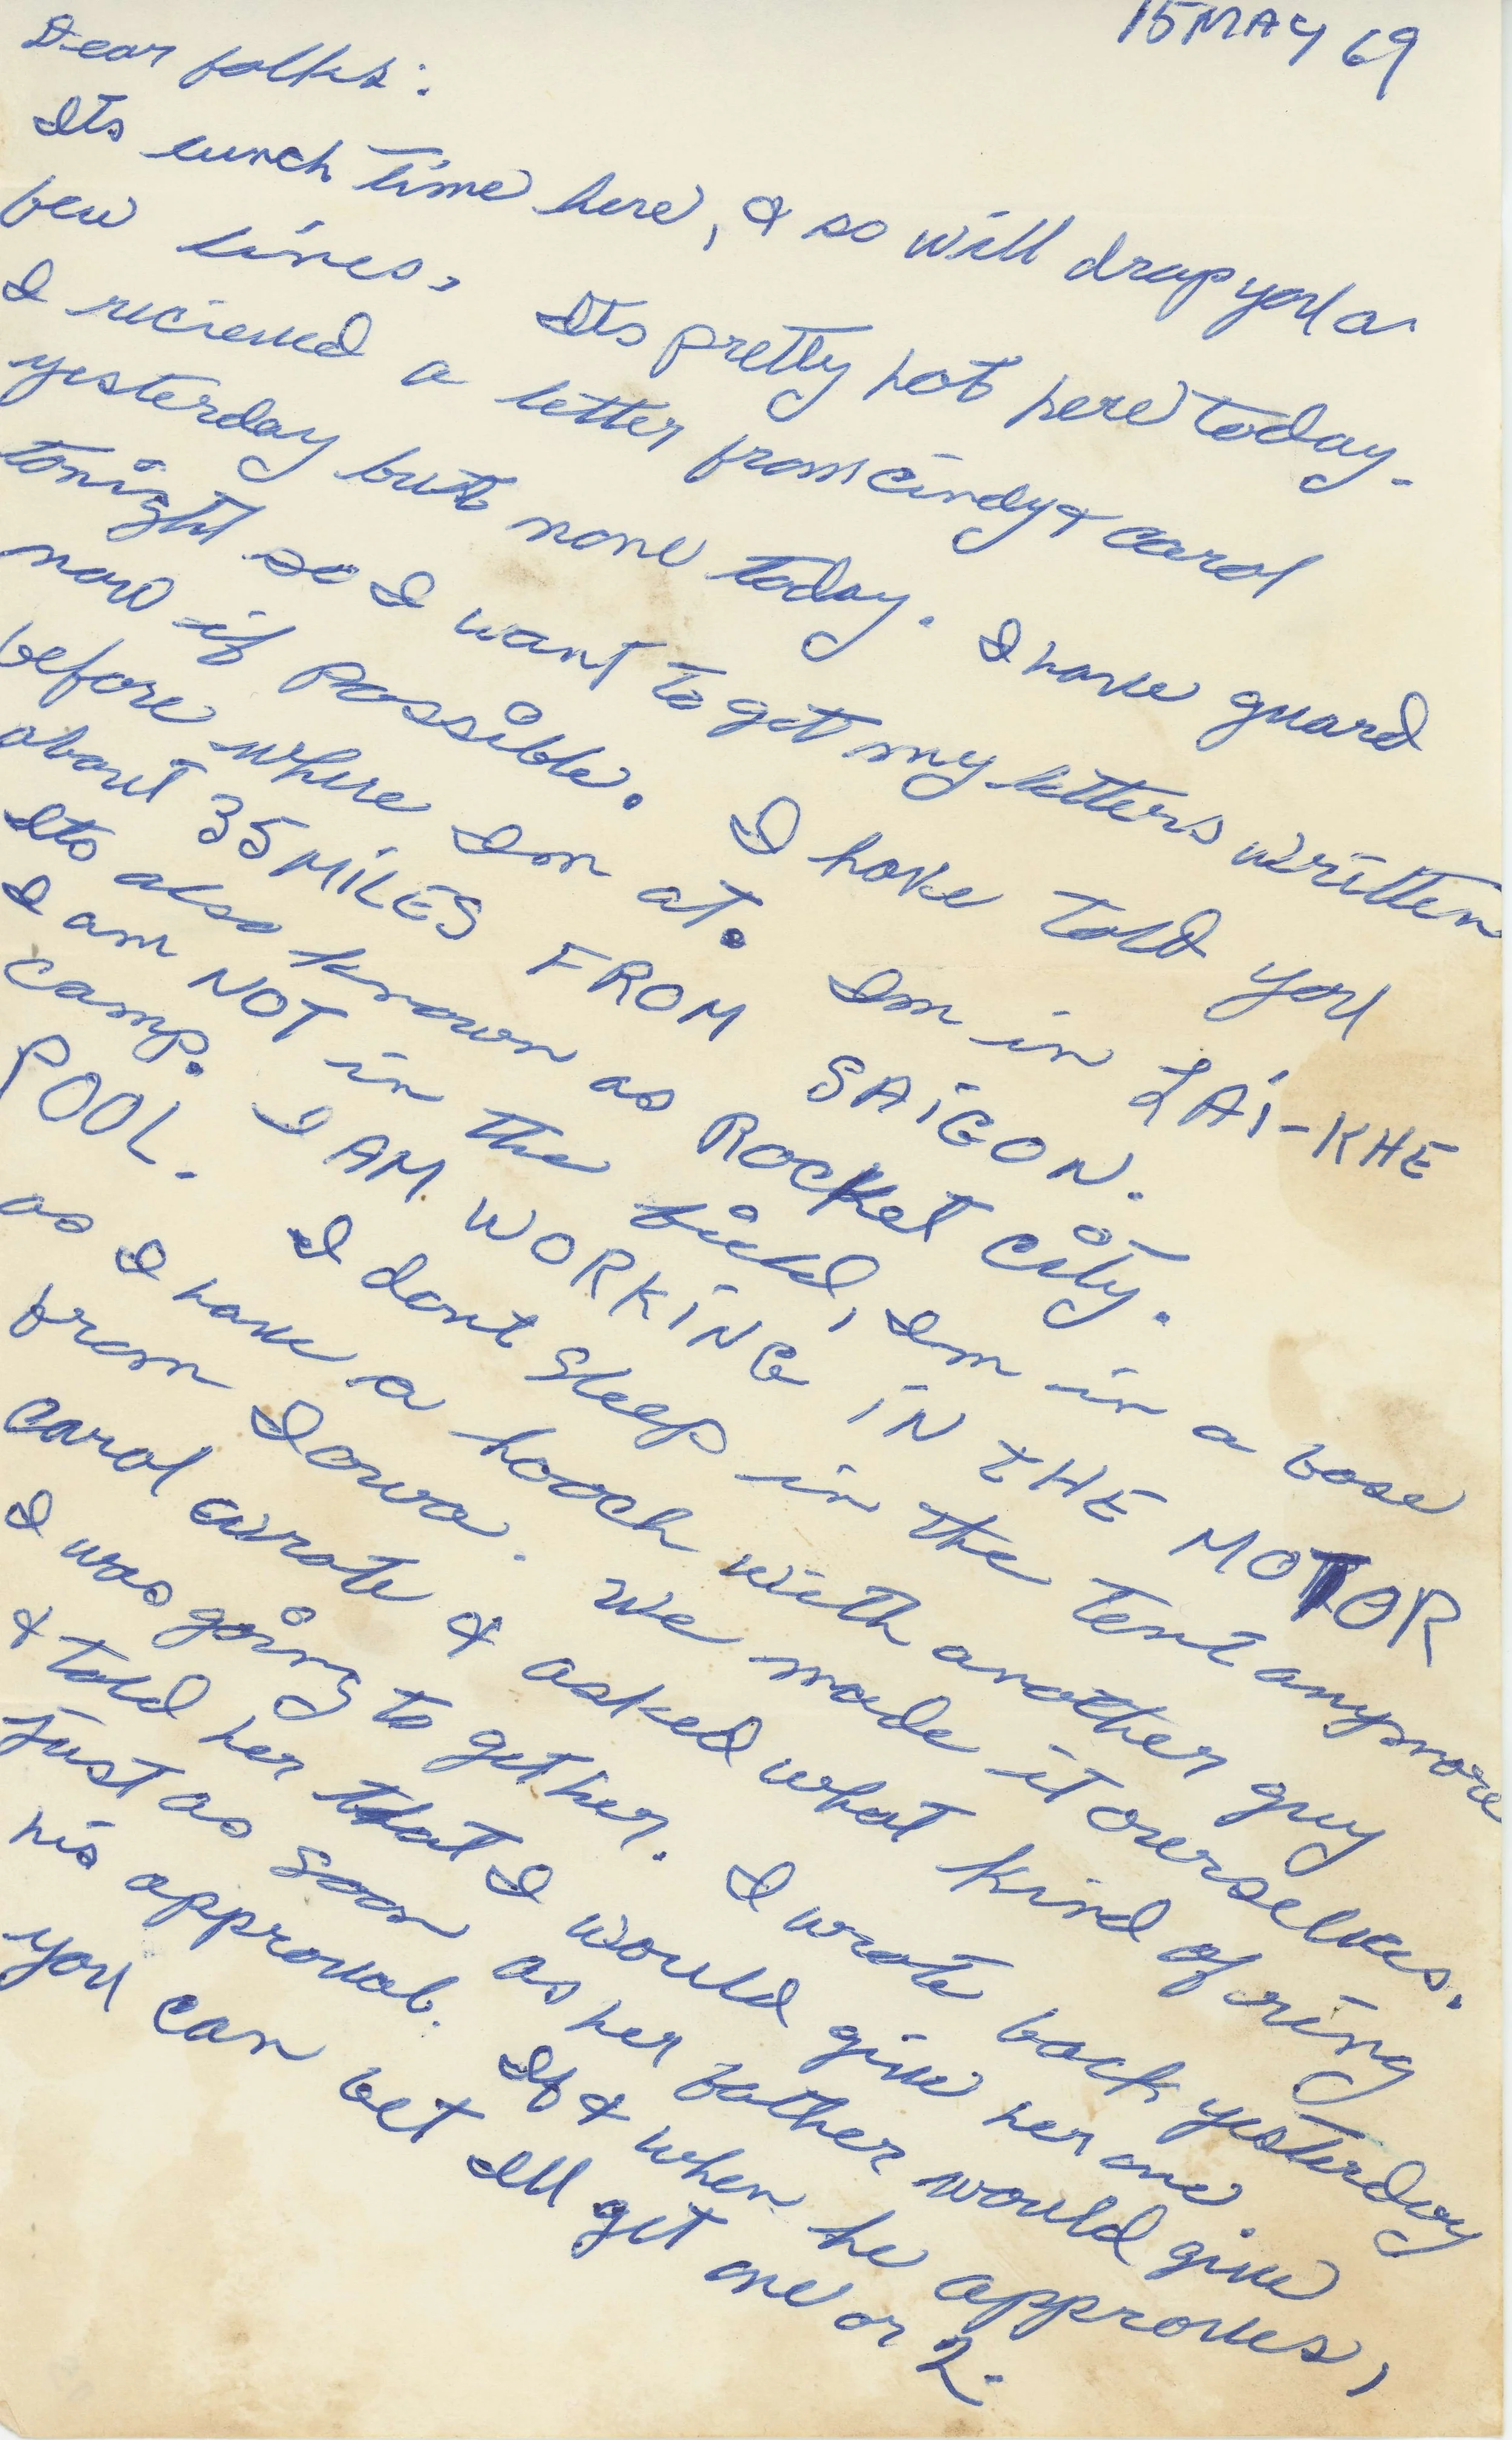 15 MAY 69
Dear folks:
Its lunch time here, & so will drop you a
few lines. Its pretty hot here today.
I recieved a letter from Cindy & Carol
yesterday but none today. I have guard
tonight so I want to get my letters written
now if possible. I have told you
before where Im at. Im in LAi-KHE
about 35 MiLES FROM SAiGON.
Its also known as Rocket City.
I am NOT in the field, Im in a base
camp. I AM WORKiNG iN THE MOTOR
POOL. I dont sleep in the tent anymore
as I have a hooch with another guy
from Iowa. We made it ourselves.
Carol wrote & asked what kind of ring
I was going to get her. I wrote back yesterday
& told her that I would give her one
just as soon as her father would give
his approval. If & when he approves,
you can bet Ill get one or 2.